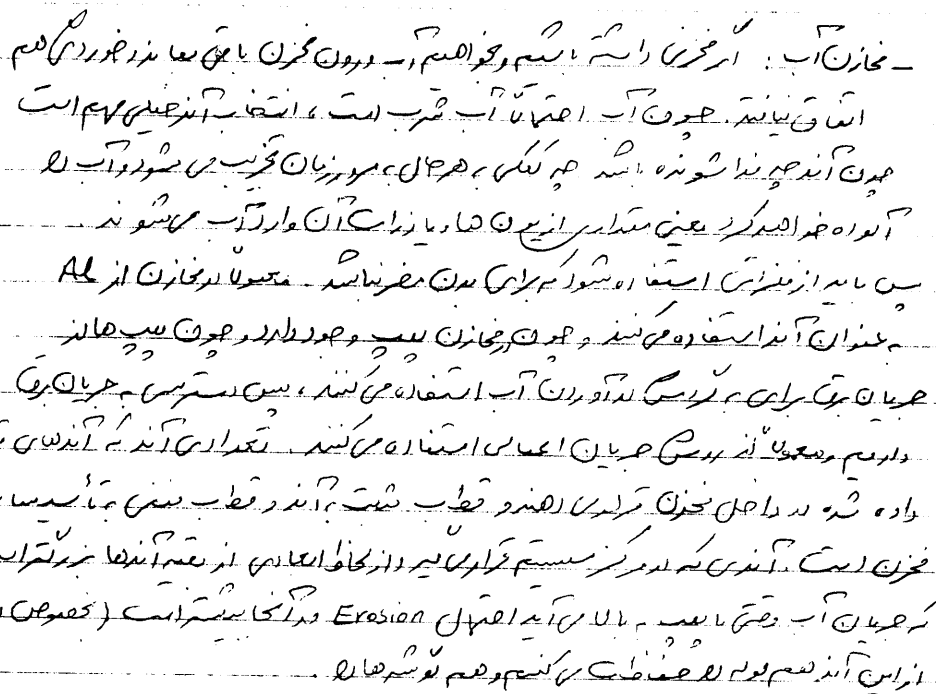 ـ مخازن آب : اگر مخزنی داشته باشیم و بخواهیم آب درون مخزن باقی بماند و خوردگی هم
اتفاق نیافتد. چون آب احتمالاً آب شرب است ، انتخاب آند خیلی مهم است
چون آند چه فدا شونده باشد چه کمکی به هر حال به مرور زمان تخریب می شود و آب را
آلوده خواهد کرد یعنی مقداری از یون ها و یا ذرات آن وارد آب می شوند .
پس باید از فلزاتی استفاده شود که برای بدن مضر نباشد . معمولاً در مخازن از Al
به عنوان آند استفاده می کنند و چون در مخازن پمپ وجود دارد و چون پمپ ها از
جریان برق برای به گردش درآوردن آب استفاده می کنند ، پس دسترسی به جریان برق
داریم و معمولاً از روش جریان اعمالی استفاده می کنند . تعدادی آند که آندهای
داده شده در داخل مخزن قرار می دهند و قطب مثبت به آند و قطب منفی به تأسیسات
مخزن است . آندی که در مرکز سیستم قرار می گیرد از لحاظ ابعادی از بقیه آندها بزرگتر است
که جریان آب وقتی با پمپ به بالا می آید احتمال Erosion در آنجا بیشتر است ( بخصوص
از این آند هم لوله را حفاظت می کنیم و هم گوشه ها را .